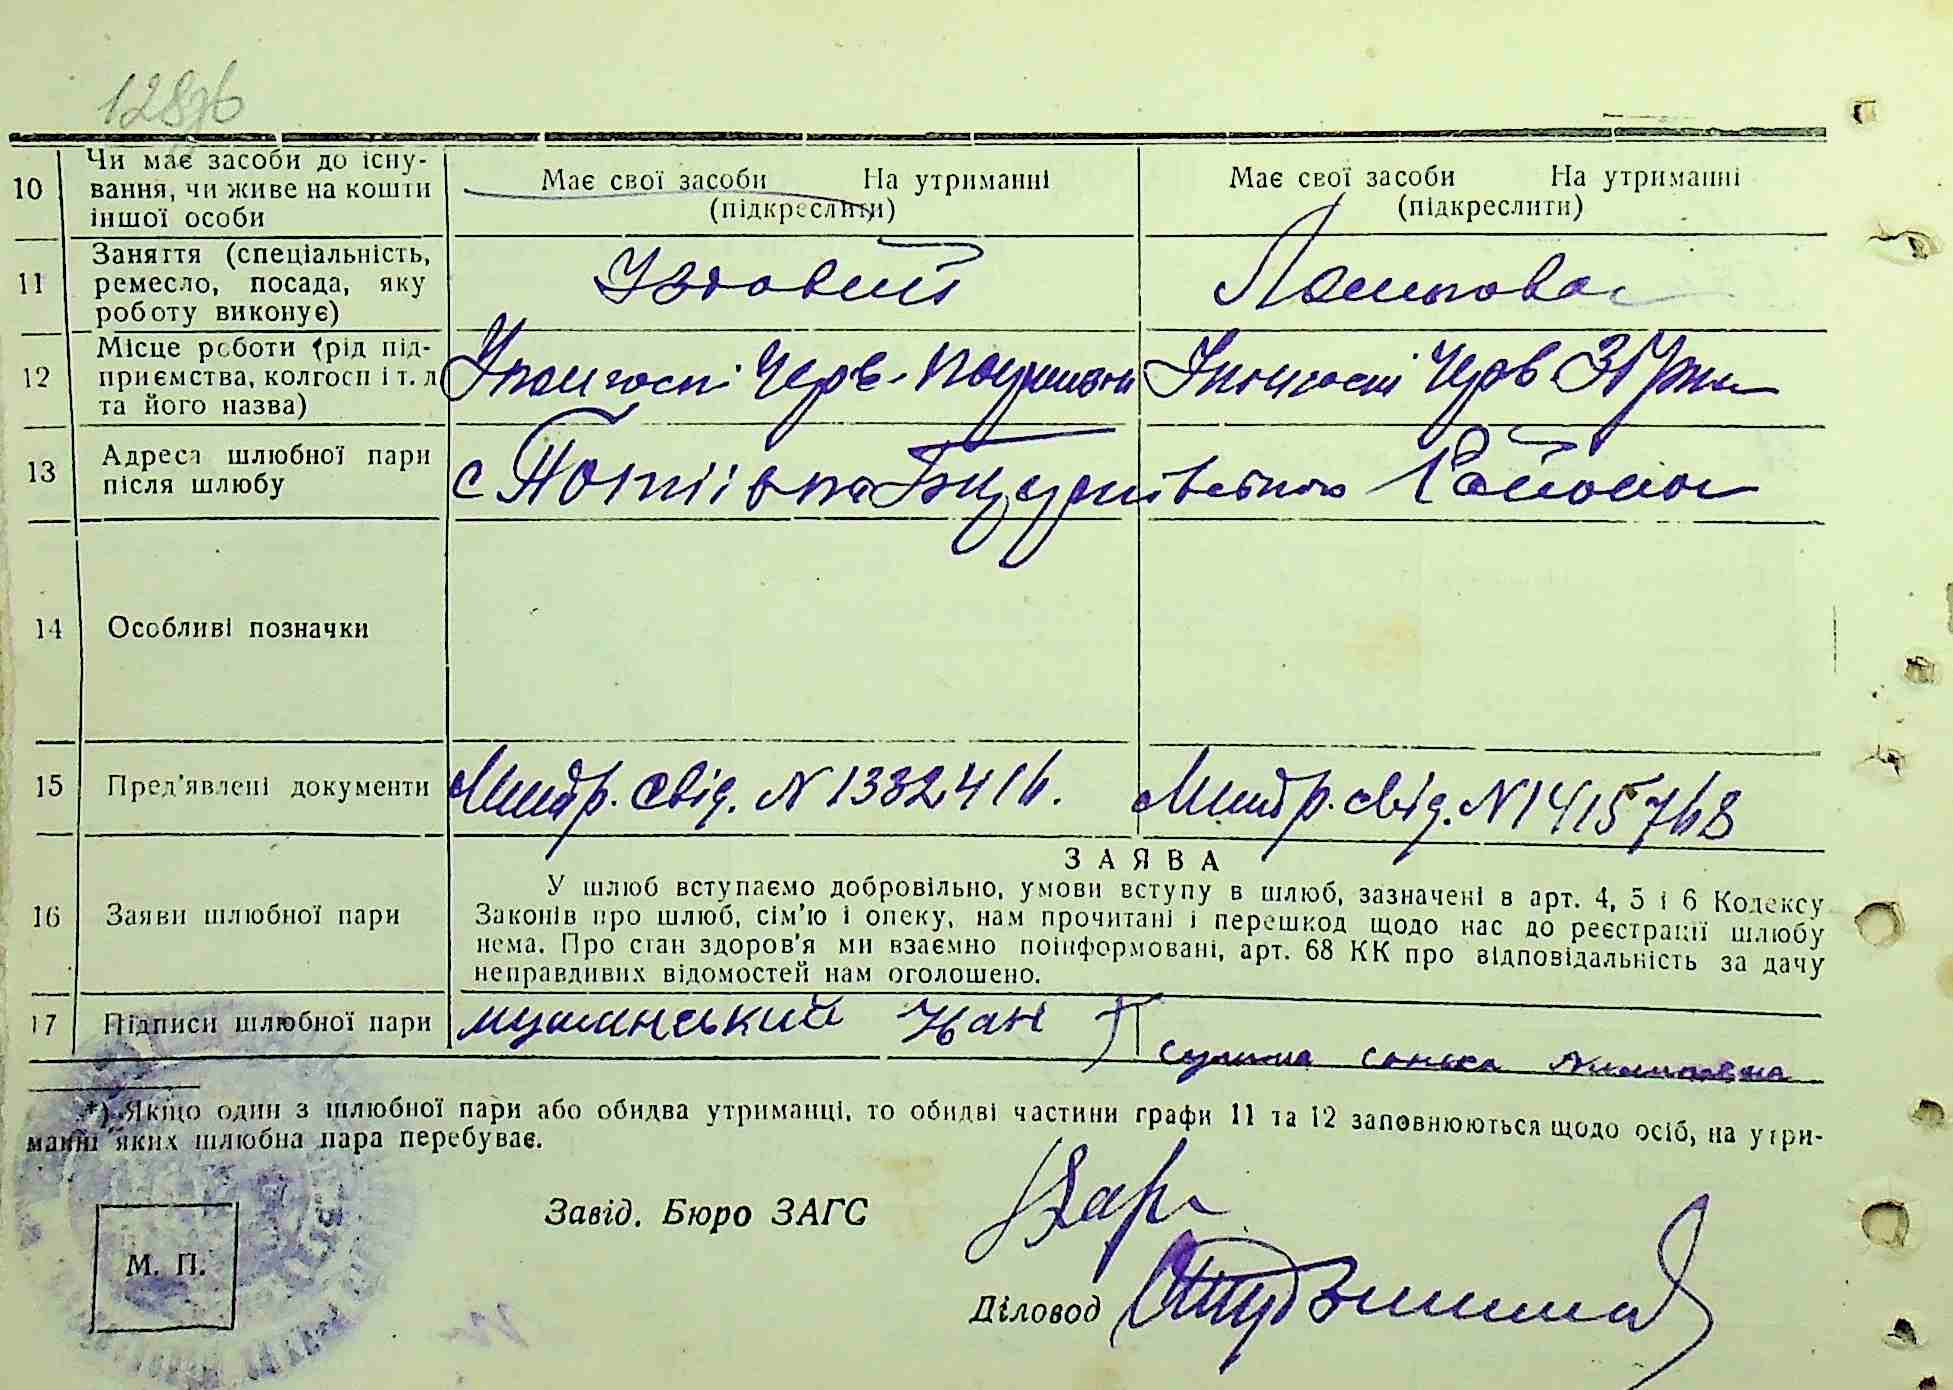 128зв
10 Чи має засоби до існу-
вання, чи живе на кошти
іншої особи
Має свої засоби На утриманні
(підкреслити)
Має свої засоби На утриманні
(підкреслити)
11 Заняття (спеціальність,
ремесло, посада, яку
роботу виконує)
Їздовий
Ланкова
12 Місце роботи (рід під-
приємства, колгосп і т. д
та його назва)
У колгоспі Черв.
У колгоспі Черв
13 Адреса шлюбної пари
після шлюбу
с Потіївка району
14 Особливі позначки
15 Пред'явлені документи
Метр. свід. N 1332416.
Метр. свід. N 1415768
16 Заяви шлюбної пари
ЗАЯВА
У шлюб вступаємо добровільно, умови вступу в шлюб, зазначені в арт. 4, 5 і 6 Кодексу
Законів про шлюб, сім'ю і опеку, нам прочитані і перешкод щодо нас до реєстрації шлюбу
нема. Про стан здоров'я ми взаємно поінформовані, арт. 68 КК про відповідальність за дачу
неправдивих відомостей нам оголошено.
17 Підписи шлюбної пари
мушинський Іван
*) Якщо один з шлюбної пари або обидва утриманці, то обидві частини графи 11 та 12 заповнюються щодо осіб, на утри-
манні яких шлюбна пара перебуває.
Завід. Бюро ЗАГС
М. П.
Діловод